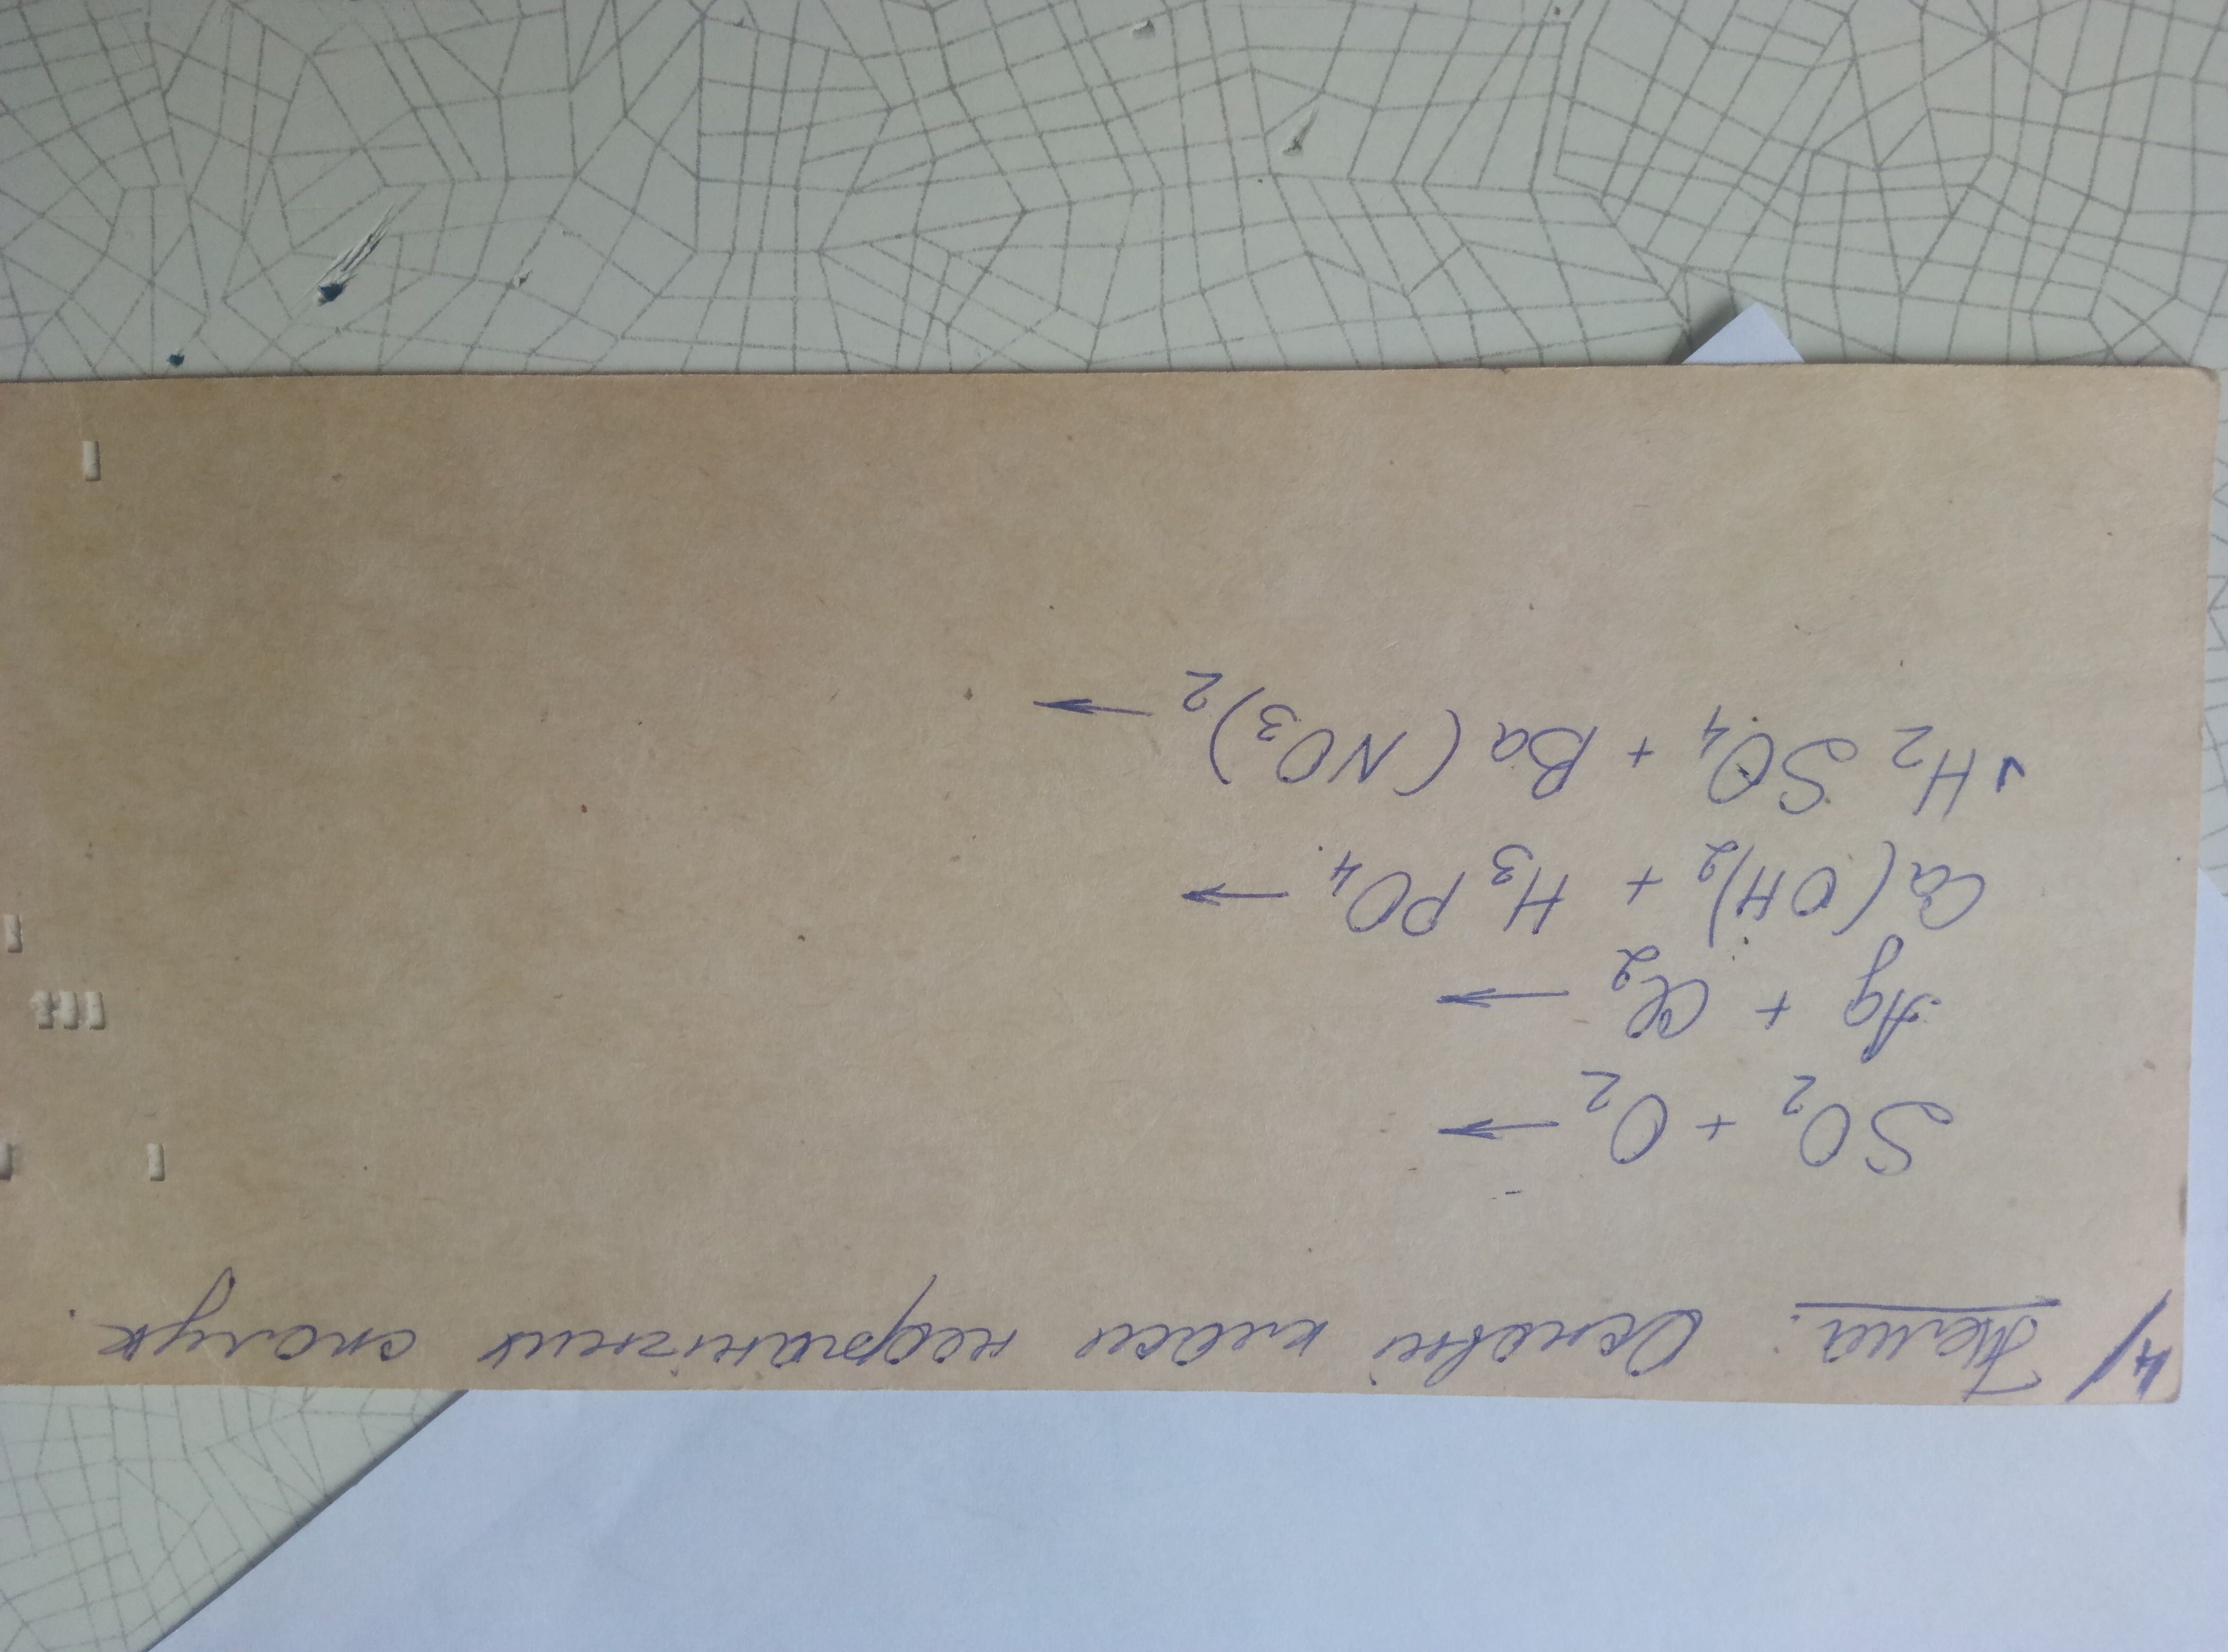 4/ Тема: Основні класи неорганічних сполук.
SO₂ + O₂ →
Ag + Cl₂ →
Ca(OH)₂ + H₃PO₄ →
✓ H₂SO₄ + Ba(NO₃)₂ →